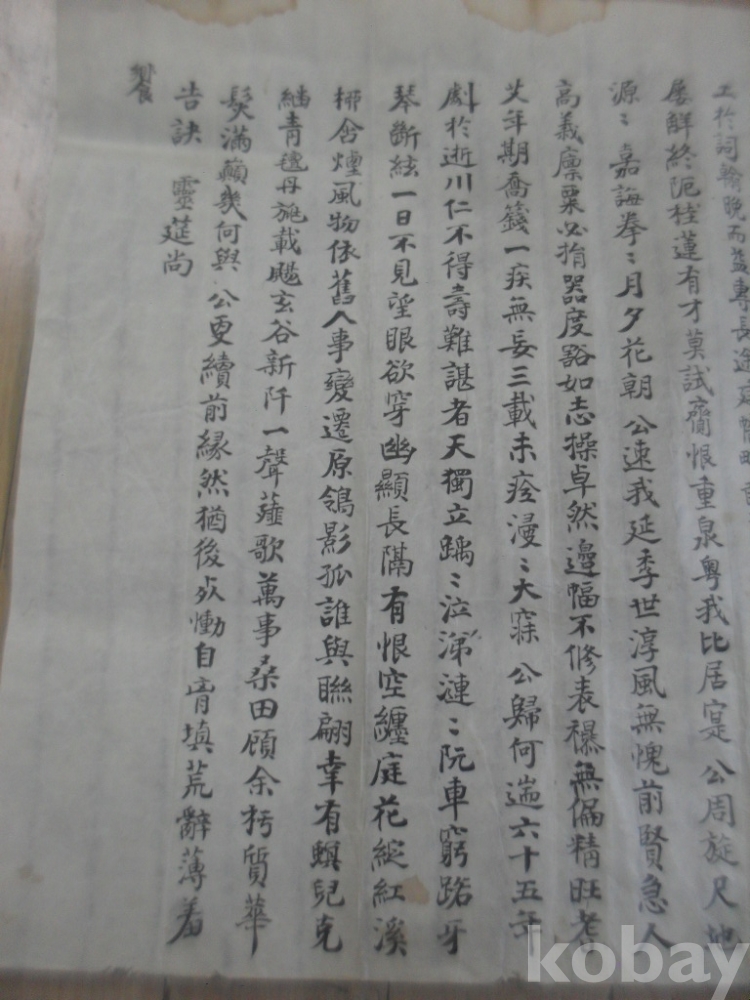 工於詞翰晩而益專長途
屢鮮終阨桂蓮有才莫試齎恨重泉粤我比居寔 公周旋尺地
源〻嘉誨拳〻月夕花朝 公速我延季世淳風無愧前賢急人
高義廩粟必捐器度豁如志操卓然邊幅不修表襮無偏精旺老
艾年期喬籛一疾無妄三載未痊漫〻大寐 公歸何遄六十五年
劇於逝川仁不得壽難諶者天獨立踽〻泣涕漣〻阮車窮路牙
琴斷絃一日不見望眼欲穿幽顯長隔有恨空纏庭花綻紅溪
柳含煙風物依舊人事變遷原鴒影孤誰與聯翩幸有螟兒克
紬青氊丹旐載颺玄谷新阡一聲薤歌萬事桑田顧余朽質華
髮滿顚幾何與 公更續前緣然猶後死慟自膺填荒辭薄羞
告訣 靈筵尚
饗
kobay